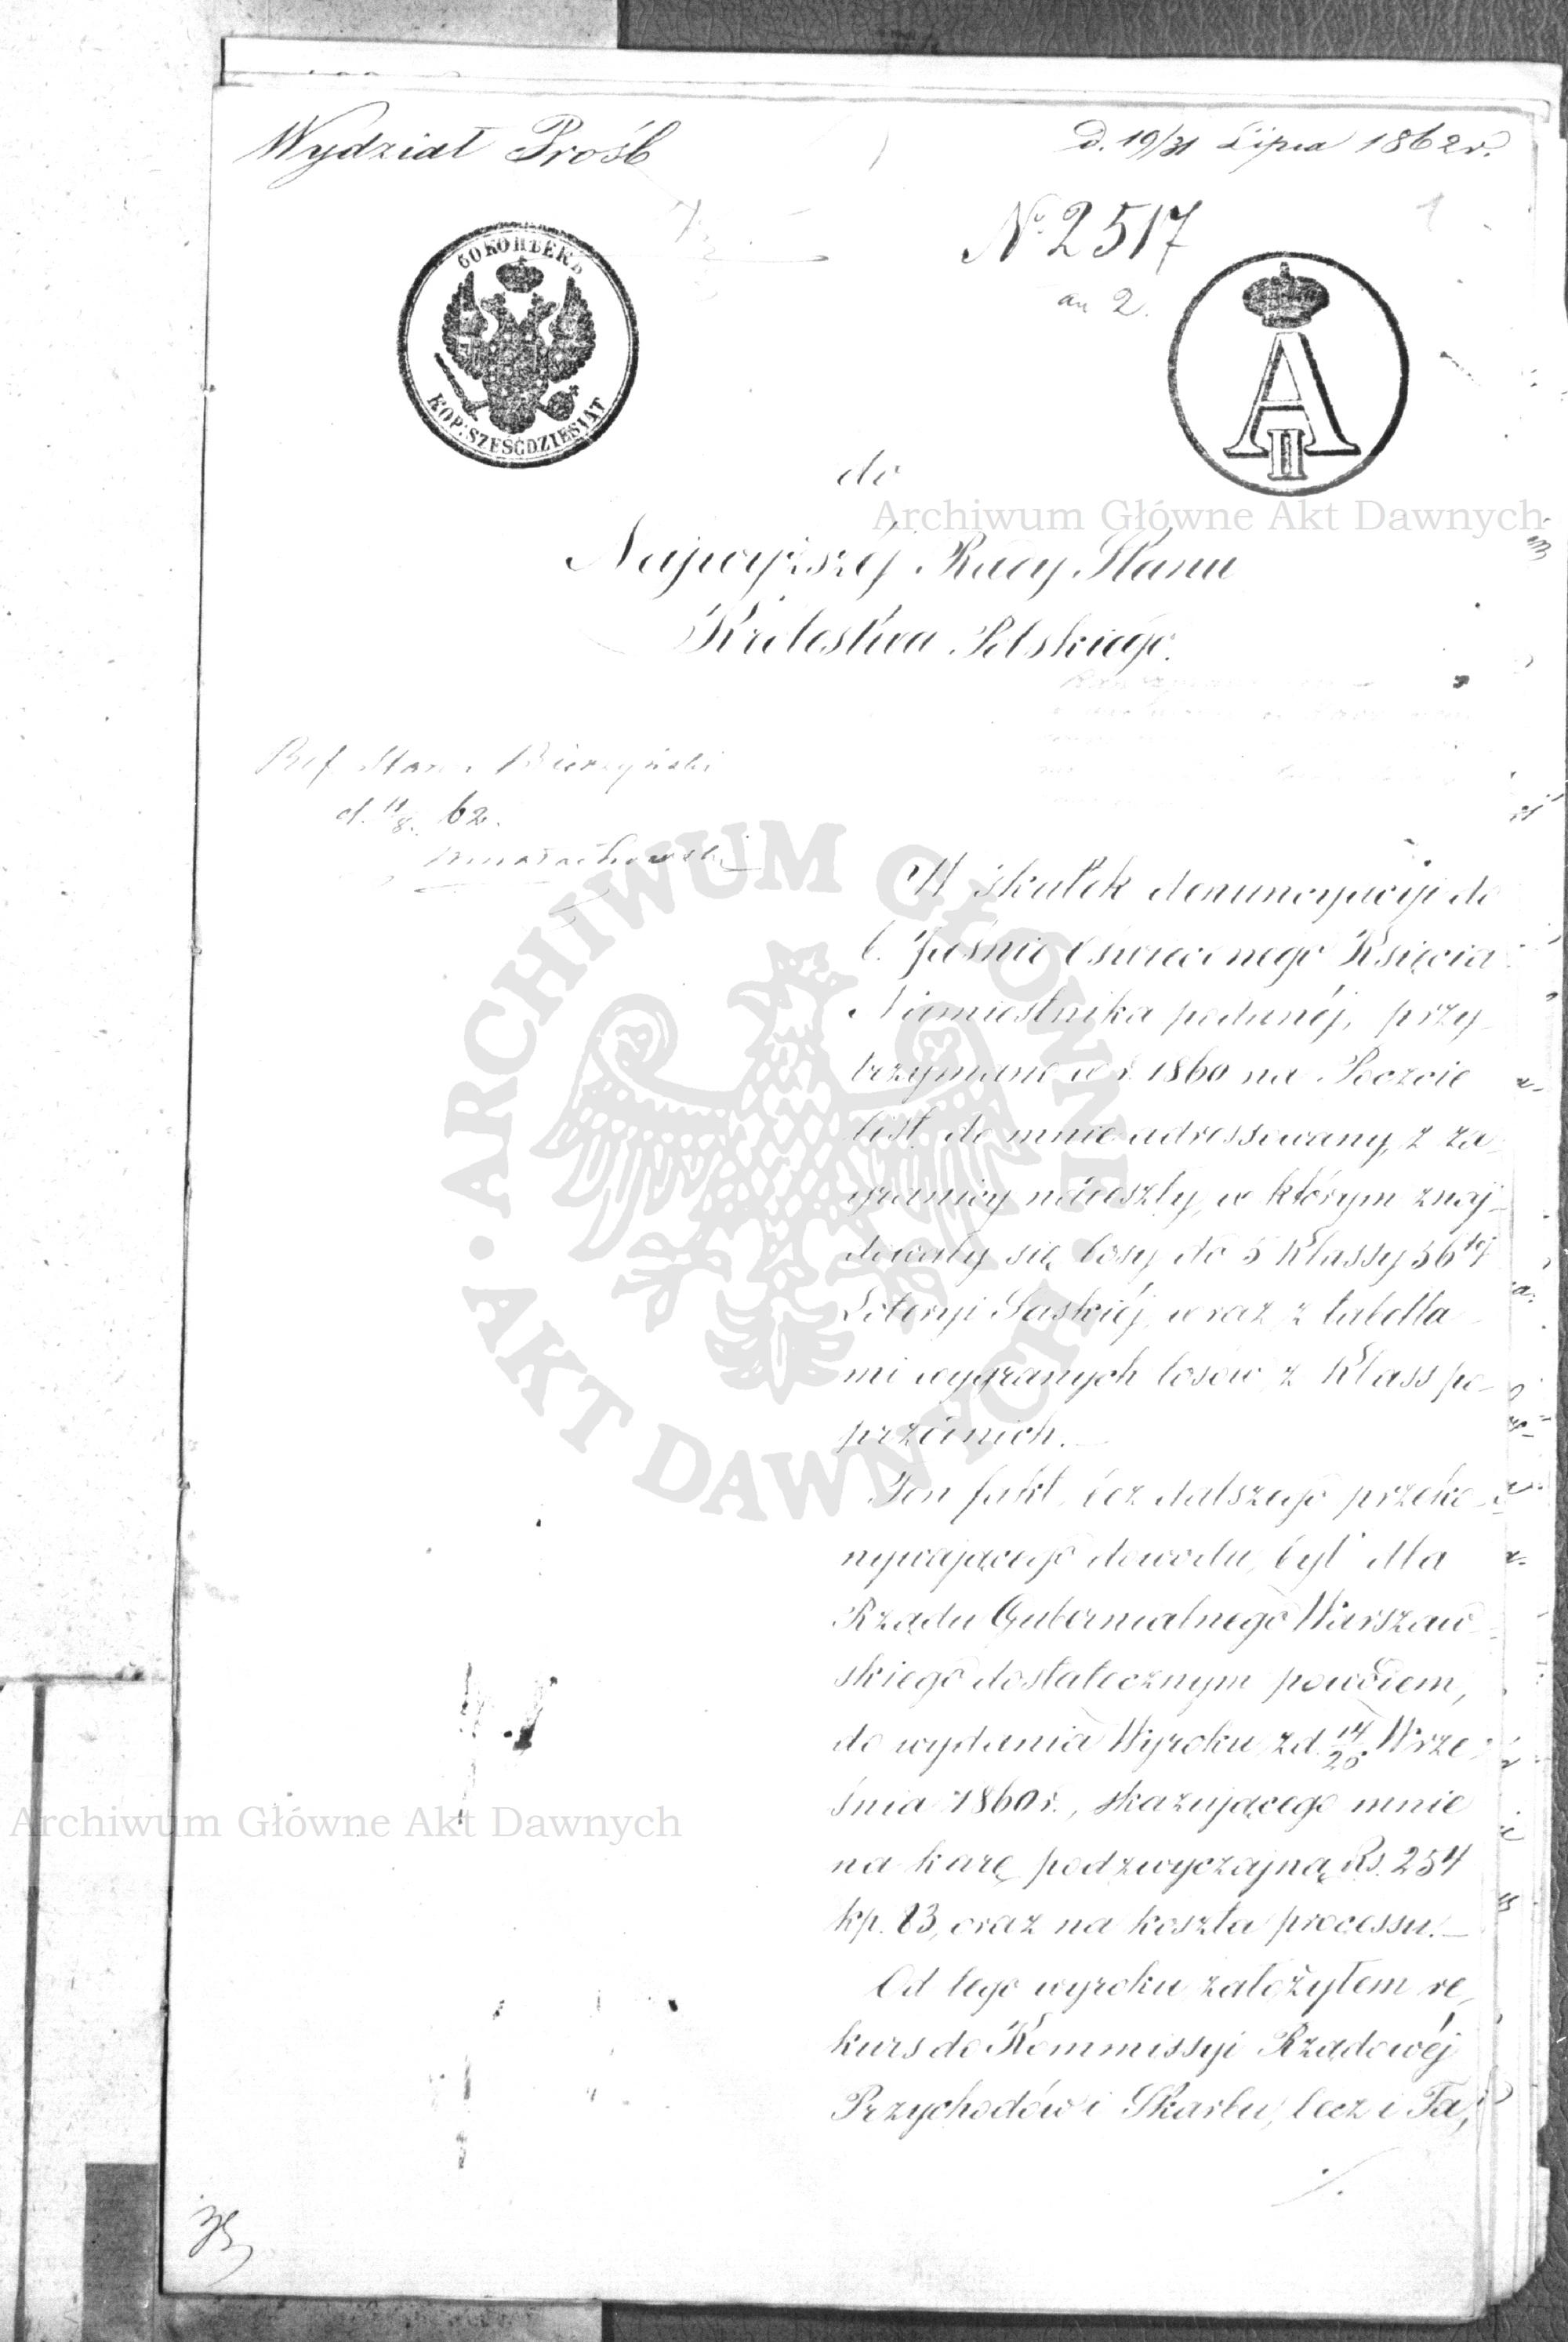 Wydział Próśb
D. 19/31 Lipca 1862 r.
1
Nº 2517
an 2.
60 КОПѢЕКЪ
KOP: SZEŚĆDZIESIĄT
A II
do
Archiwum Główne Akt Dawnych
Najwyższéj Rady Stanu
Królestwa Polskiego.
Ref. Stanu
d. 11/8. 62.
W skutek denuncyacyi do
b. Jaśnie Oświeconego Księcia
Namiestnika podanéj, przy-
trzymano w r. 1860 na Poczcie
list do mnie adressowany, z za-
granicy nadeszły, w którym znaj-
dowały się losy do 5 Klassy 56téj
Loteryi Saskiéj, wraz z tabella-
mi wygranych losów z Klass po-
przednich.—
Ten fakt, bez dalszego przeko-
nywającego dowodu, był dla
Rządu Gubernialnego Warszaw-
skiego dostatecznym powodem,
do wydania Wyroku z d. 14/26 Wrze-
śnia 1860 r., skazującego mnie
na karę podzwyczajną Rs. 254
kp. 13, oraz na koszta processu.—
Od tego wyroku założyłem re-
kurs do Kommissyi Rządowéj
Przychodów i Skarbu, lecz i Ta,
./.
ARCHIWUM GŁÓWNE AKT DAWNYCH
Archiwum Główne Akt Dawnych